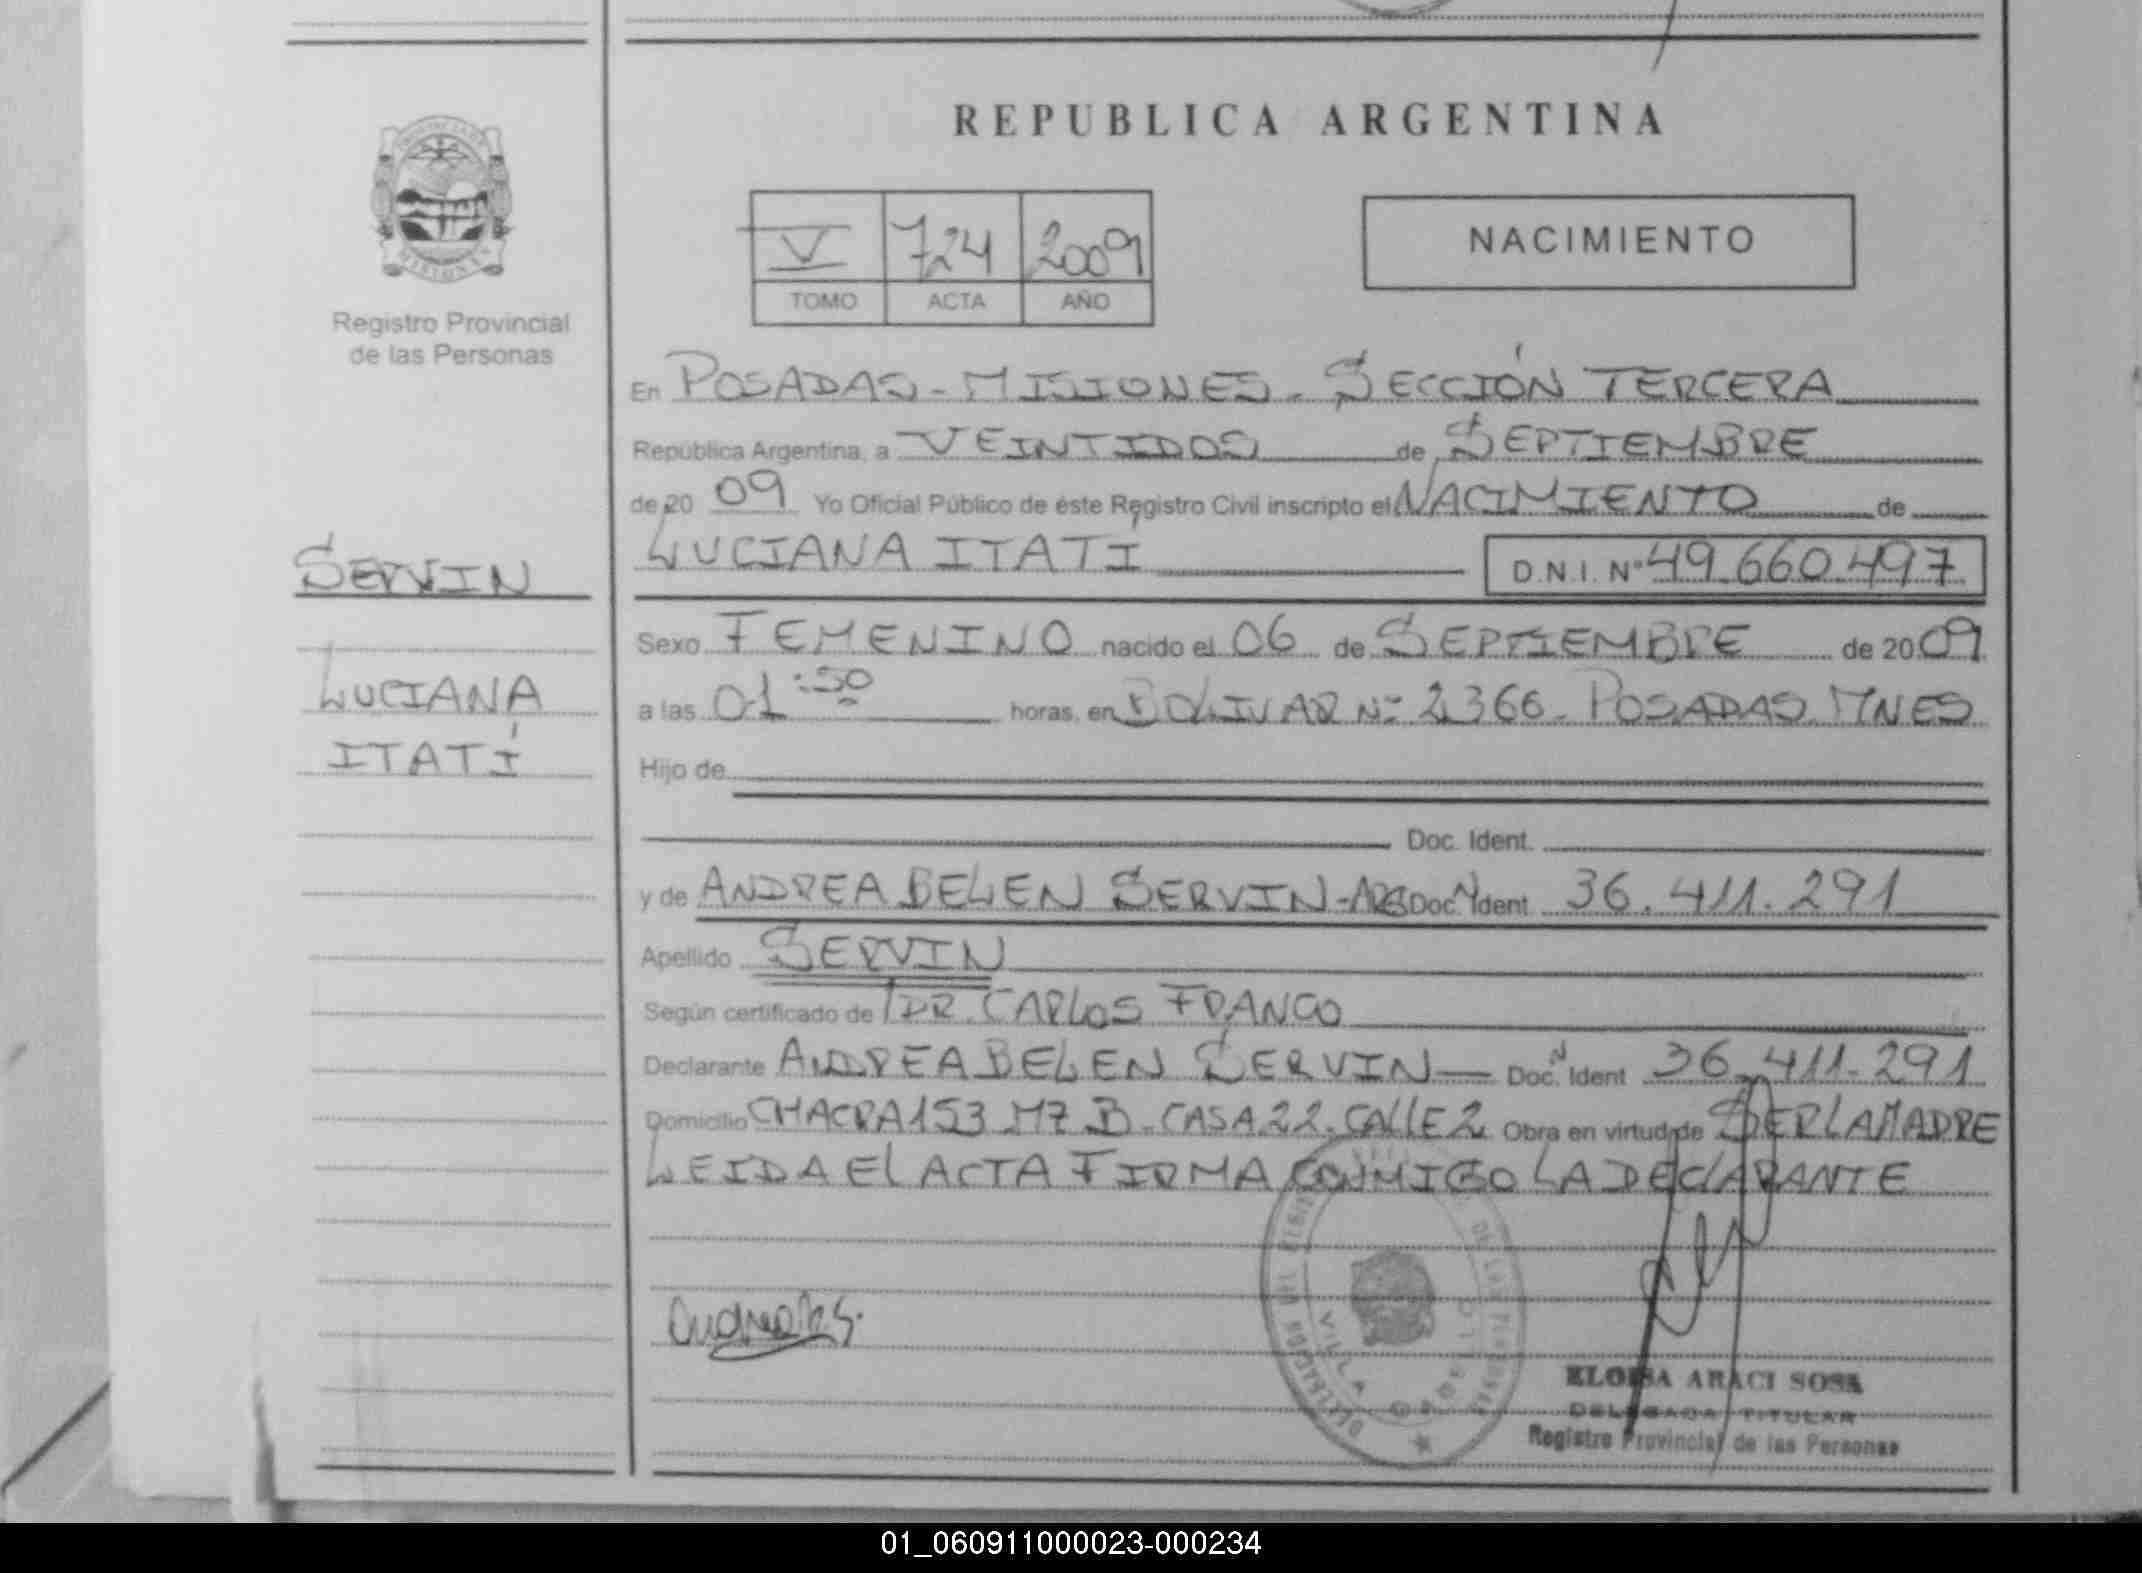 REPUBLICA ARGENTINA
V 724 2009
TOMO ACTA AÑO
NACIMIENTO
MISIONES
Registro Provincial
de las Personas
SERVIN
LUCIANA
ITATÍ
En POSADAS - MISIONES - SECCIÓN TERCERA
República Argentina, a VEINTIDOS de SEPTIEMBRE
de 20 09 Yo Oficial Público de éste Registro Civil inscripto el NACIMIENTO de
LUCIANA ITATÍ D.N.I. Nº 49.660.497
Sexo FEMENINO nacido el 06 de SEPTIEMBRE de 2009
a las 01 horas, en BOLIVAR Nº 2366 - POSADAS MNES
Hijo de
Doc. Ident.
y de ANDREA BELEN SERVIN - ARG Doc. N Ident 36.411.291
Apellido SERVIN
Según certificado de DR. CARLOS FRANCO
Declarante ANDREA BELEN SERVIN — Doc. N Ident 36.411.291
Domicilio CHACRA 153 M7 B - CASA 22 - CALLE 2 Obra en virtud de SER LA MADRE
LEIDA El ACTA FIRMA CONMIGO LA DECLARANTE
DELEGACION DEL REGISTRO DE LAS PERSONAS
VILLA
ELOISA ARACI SOSA
DELEGADA TITULAR
Registro Provincial de las Personas
01_060911000023-000234